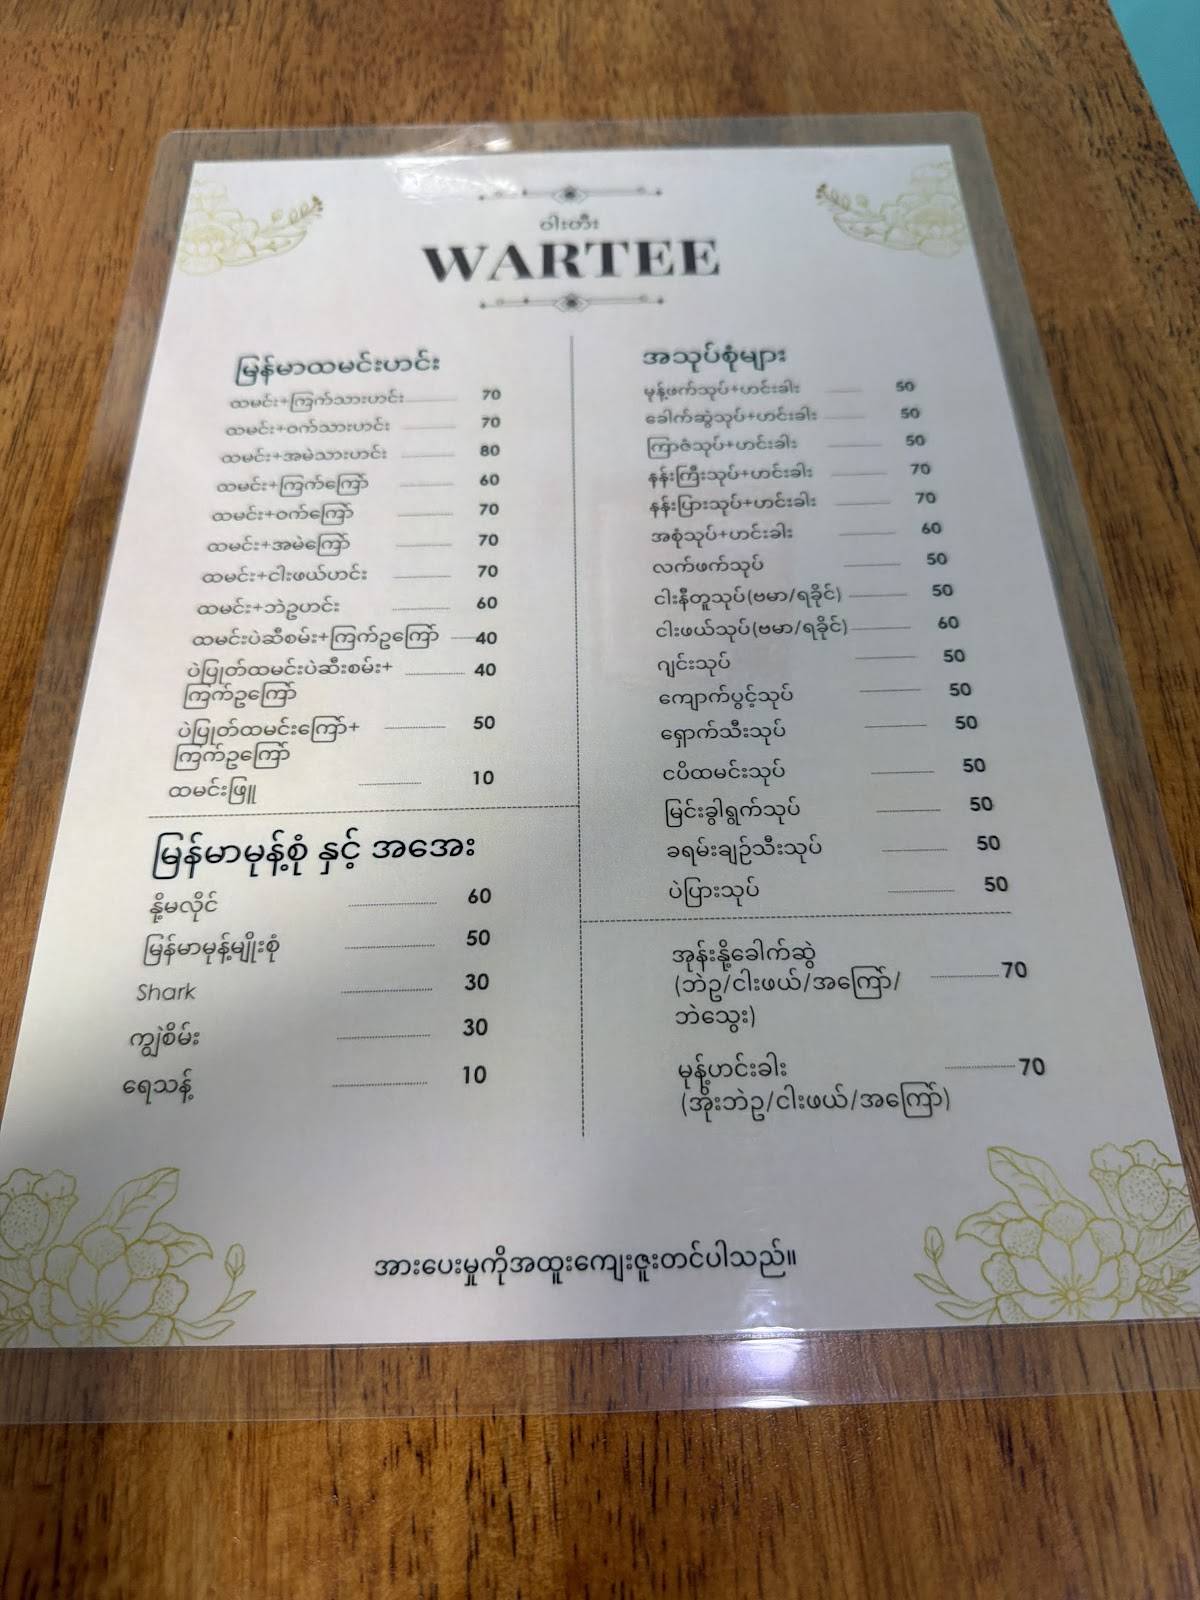 ဝါးတီး
WARTEE
မြန်မာထမင်းဟင်း
ထမင်း+ကြက်သားဟင်း 70
ထမင်း+ဝက်သားဟင်း 70
ထမင်း+အမဲသားဟင်း 80
ထမင်း+ကြက်ကြော် 60
ထမင်း+ဝက်ကြော် 70
ထမင်း+အမဲကြော် 70
ထမင်း+ငါးဖယ်ဟင်း 70
ထမင်း+ဘဲဥဟင်း 60
ထမင်းပဲဆီစမ်း+ကြက်ဥကြော် 40
ပဲပြုတ်ထမင်းပဲဆီးစမ်း+ 40
ကြက်ဥကြော်
ပဲပြုတ်ထမင်းကြော်+ 50
ကြက်ဥကြော်
ထမင်းဖြူ 10
မြန်မာမုန့်စုံ နှင့် အအေး
နို့မလိုင် 60
မြန်မာမုန့်မျိုးစုံ 50
Shark 30
ကျွဲစိမ်း 30
ရေသန့် 10
အသုပ်စုံများ
မုန့်ဖက်သုပ်+ဟင်းခါး 50
ခေါက်ဆွဲသုပ်+ဟင်းခါး 50
ကြာဇံသုပ်+ဟင်းခါး 50
နန်းကြီးသုပ်+ဟင်းခါး 70
နန်းပြားသုပ်+ဟင်းခါး 70
အစုံသုပ်+ဟင်းခါး 60
လက်ဖက်သုပ် 50
ငါးနီတူသုပ်(ဗမာ/ရခိုင်) 50
ငါးဖယ်သုပ်(ဗမာ/ရခိုင်) 60
ဂျင်းသုပ် 50
ကျောက်ပွင့်သုပ် 50
ရှောက်သီးသုပ် 50
ငပိထမင်းသုပ် 50
မြင်းခွါရွက်သုပ် 50
ခရမ်းချဉ်သီးသုပ် 50
ပဲပြားသုပ် 50
အုန်းနို့ခေါက်ဆွဲ
(ဘဲဥ/ငါးဖယ်/အကြော်/ 70
ဘဲသွေး)
မုန့်ဟင်းခါး 70
(အိုးဘဲဥ/ငါးဖယ်/အကြော်)
အားပေးမှုကိုအထူးကျေးဇူးတင်ပါသည်။